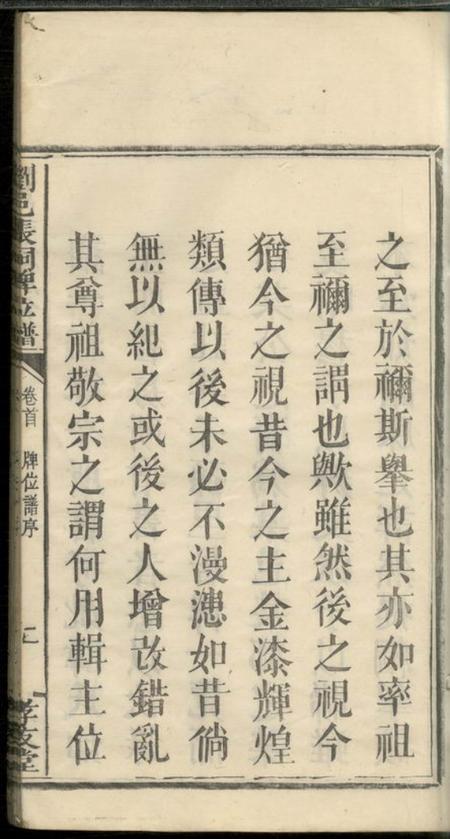 之至於禰斯舉也其亦如率祖
至禰之謂也歟雖然後之視今
猶今之視昔今之主金漆輝煌
類傳以後未必不漫漶如昔倘
無以紀之或後之人增改錯亂
其尊祖敬宗之謂何用輯主位
劉邑張祠牌位譜
卷首 牌位譜序
孝友堂